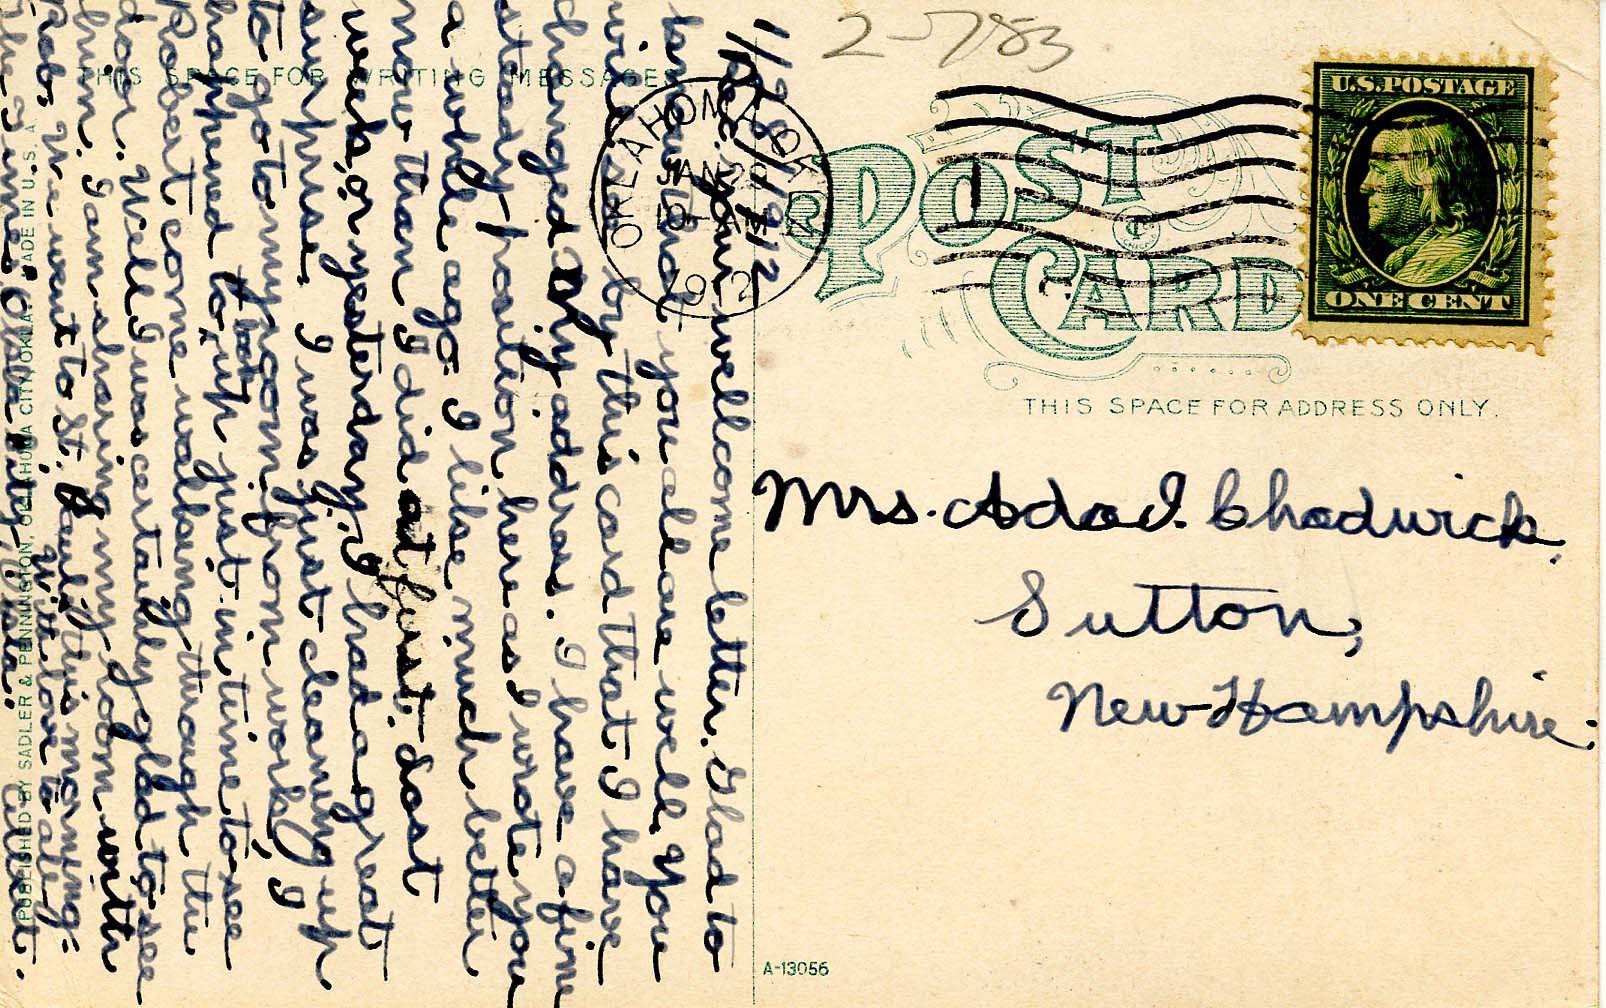 2-783
U.S. POSTAGE
ONE CENT
OKLAHOMA, OKLA.
JAN 29
10 AM
1912
POST CARD
THIS SPACE FOR WRITING MESSAGES
THIS SPACE FOR ADDRESS ONLY.
Mrs. Ada I. Chadwick,
Sutton,
New Hampshire.
A-13056
PUBLISHED BY SADLER & PENNINGTON, OKLAHOMA CITY, OKLA. MADE IN U.S.A.
1/28/1912
Rec. your wellcome letter. Glad to
know that you all are well. You
will see by this card that I have
changed my address. I have a fine
steady position here as I wrote you
a while ago. I like much better
now than I did at first. Last
week, or yesterday, I had a great
surprise. I was just cleaning up
to go to my room from work, I
happened to look up just in time to see
Robert come walking through the
door. Well I was certainly glad to see
him. I am sharing my room with
Rob. We went to St. Paul's this morning.
With love to all